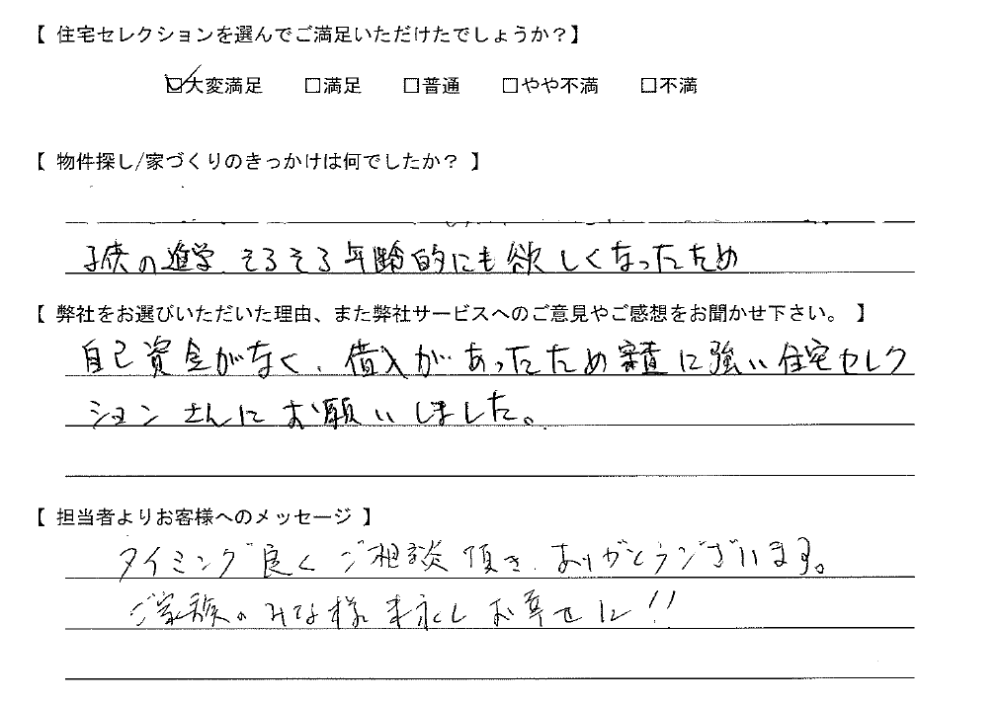 【 住宅セレクションを選んでご満足いただけたでしょうか？】
☑大変満足 □満足 □普通 □やや不満 □不満
【 物件探し/家づくりのきっかけは何でしたか？ 】
子供の進学、そろそろ年齢的にも欲しくなったため
【 弊社をお選びいただいた理由、また弊社サービスへのご意見やご感想をお聞かせ下さい。 】
自己資金がなく、借入があったため審査に強い住宅セレク
ションさんにお願いしました。
【 担当者よりお客様へのメッセージ 】
タイミング良くご相談頂き、ありがとうございます。
ご家族のみな様末永しお幸せに!!